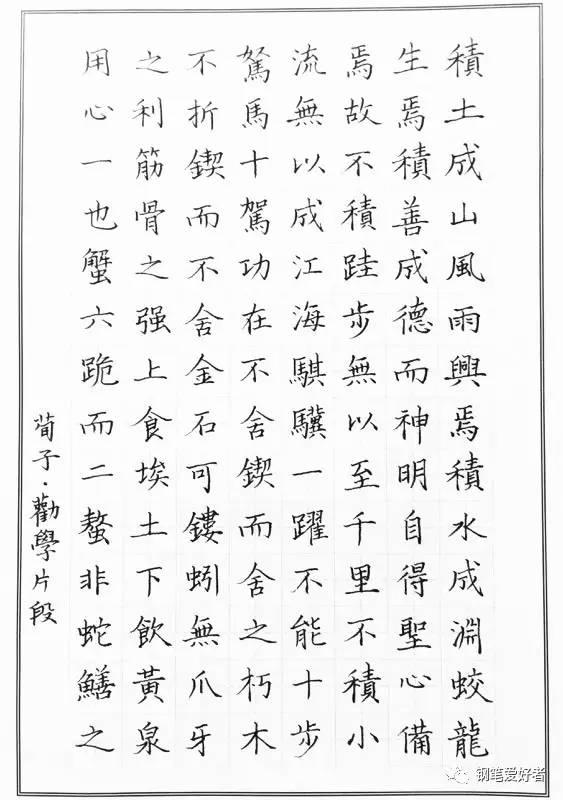 積土成山風雨興焉積水成淵蛟龍
生焉積善成德而神明自得聖心備
焉故不積跬步無以至千里不積小
流無以成江海騏驥一躍不能十步
駑馬十駕功在不舍鍥而舍之朽木
不折鍥而不舍金石可鏤蚓無爪牙
之利筋骨之强上食埃土下飲黃泉
用心一也蟹六跪而二螯非蛇鱔之
荀子·勸學片段
钢笔爱好者